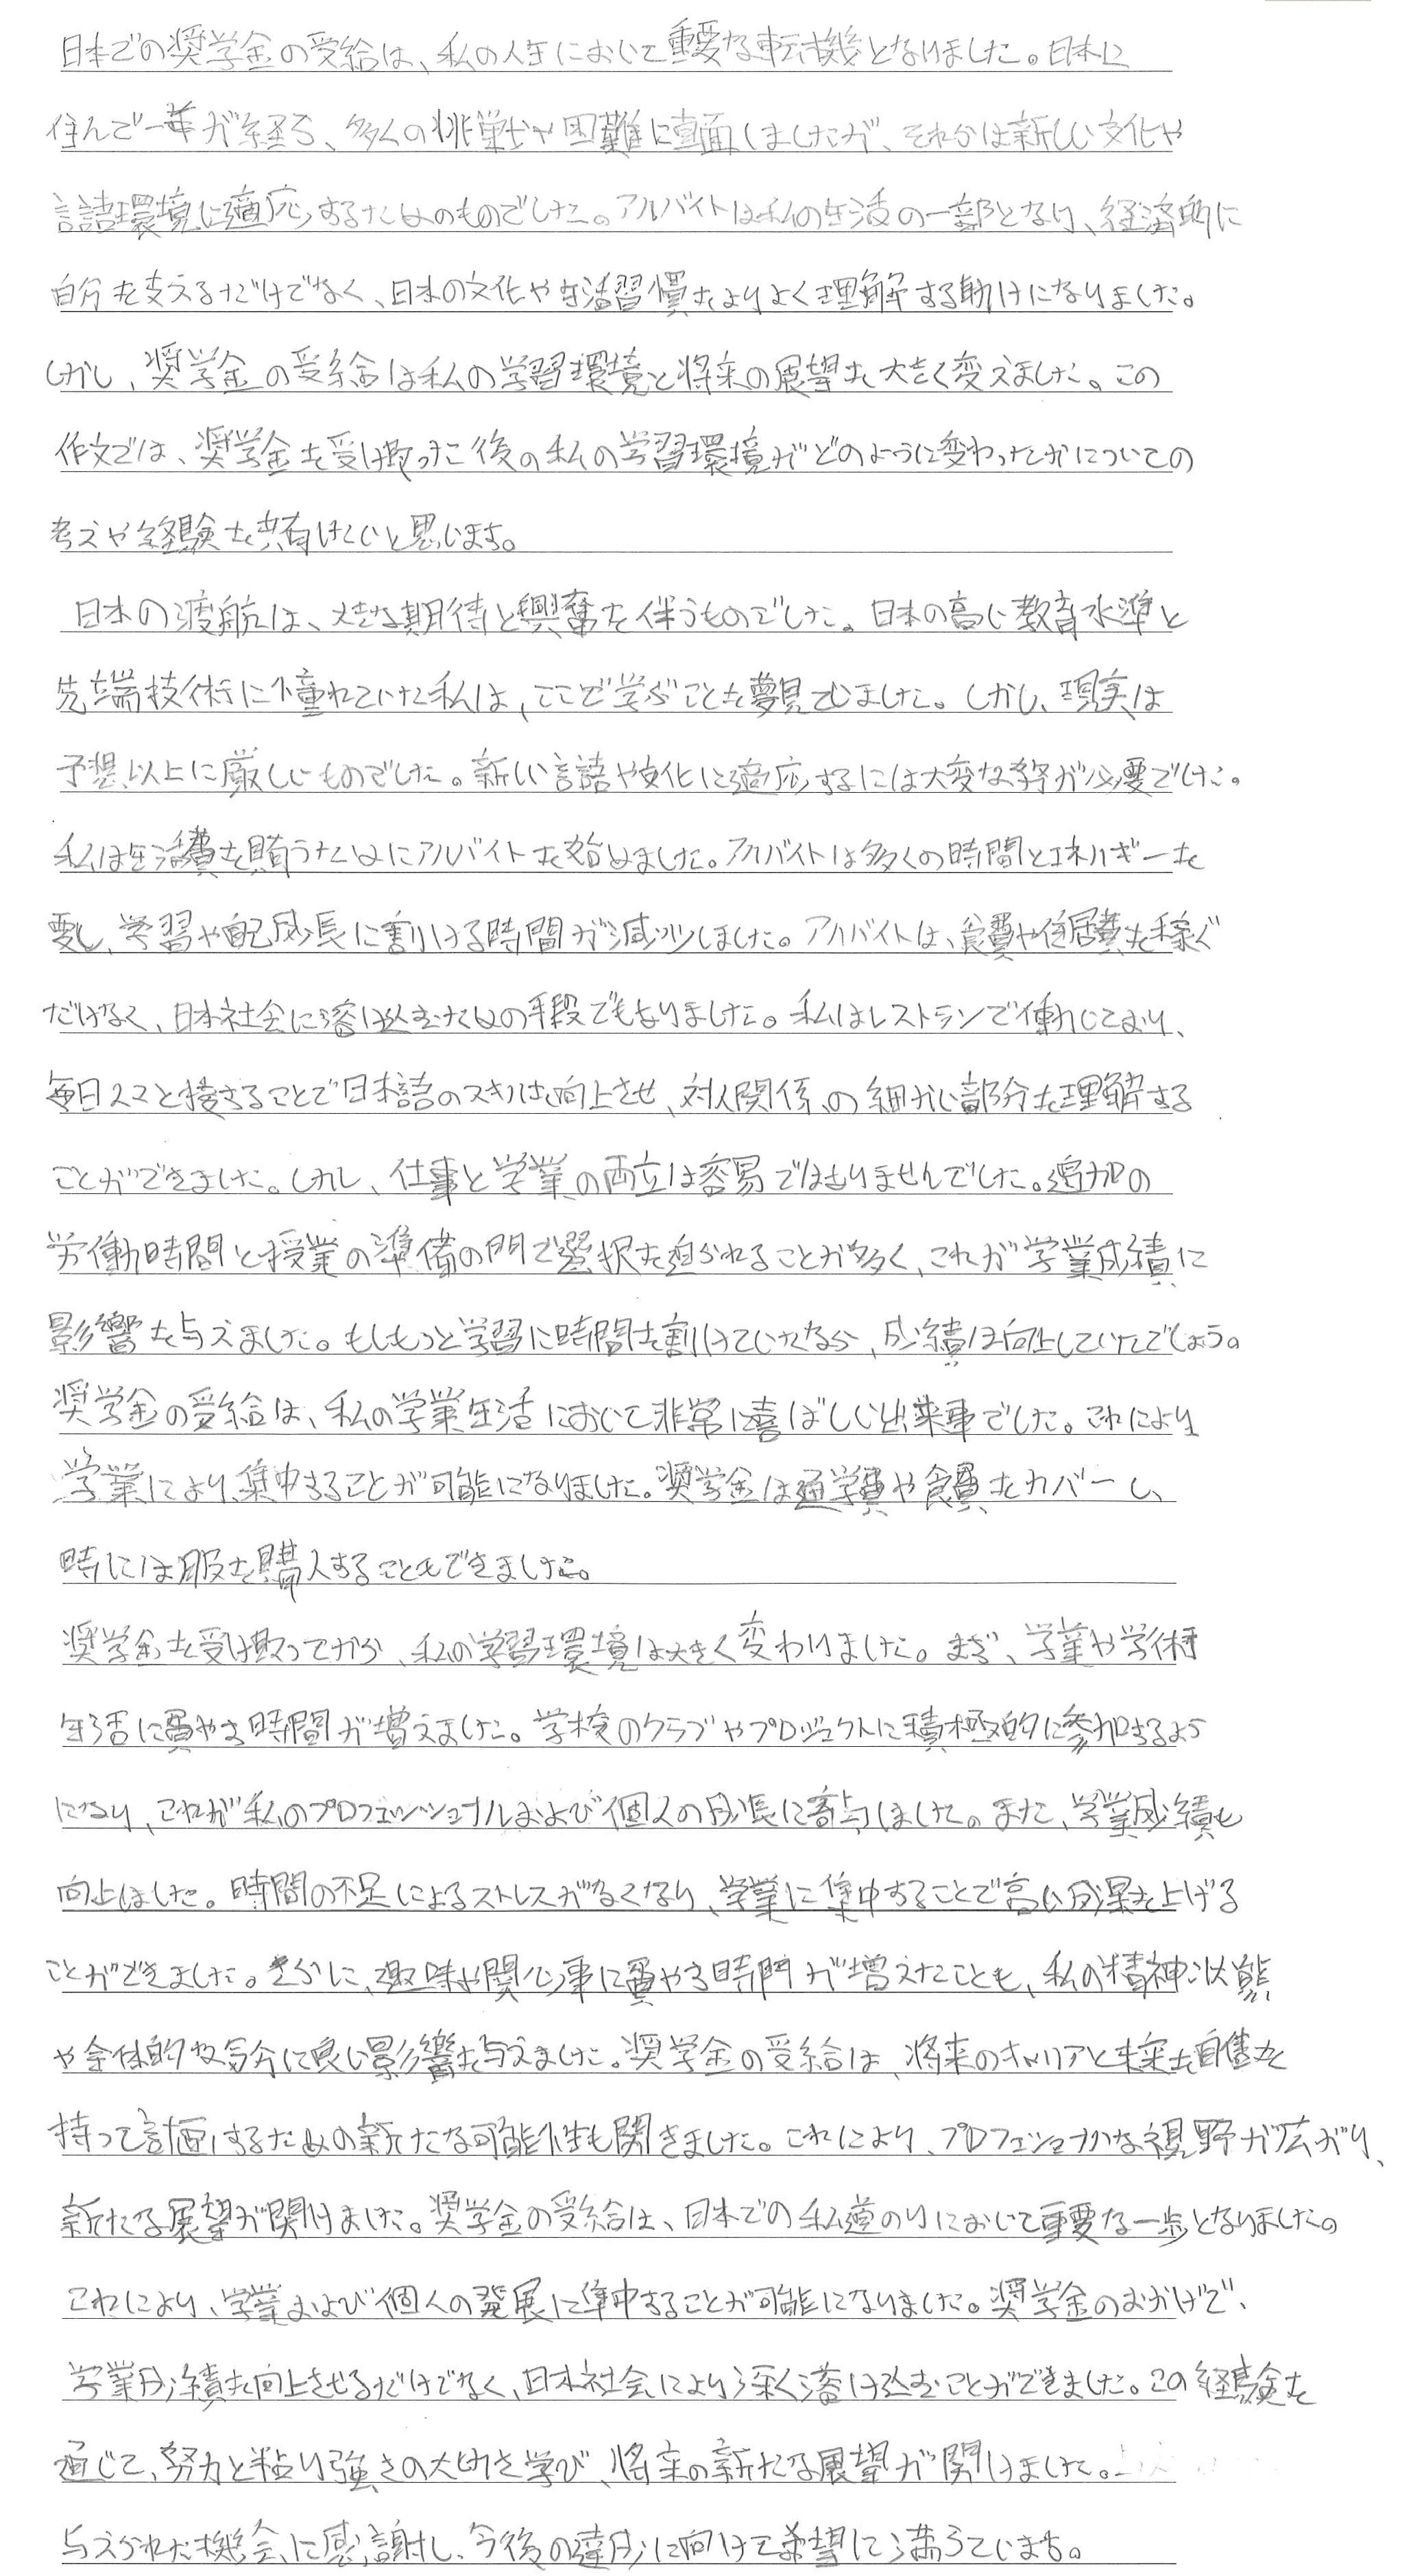 日本での奨学金の受給は、私の人生において重要な転機となりました。日本に
住んで一年が経ち、多くの挑戦や困難に直面しましたが、それらは新しい文化や
言語環境に適応するためのものでした。アルバイトは私の生活の一部となり、経済的に
自分を支えるだけでなく、日本の文化や生活習慣をよりよく理解する助けになりました。
しかし、奨学金の受給は私の学習環境と将来の展望を大きく変えました。この
作文では、奨学金を受け取った後の私の学習環境がどのように変わったかについての
考えや経験を共有したいと思います。
日本の渡航は、大きな期待と興奮を伴うものでした。日本の高い教育水準と
先端技術に憧れていた私は、ここで学ぶことを夢見ていました。しかし、現実は
予想以上に厳しいものでした。新しい言語や文化に適応するには大変な努力が必要でした。
私は生活費を賄うためにアルバイトを始めました。アルバイトは多くの時間とエネルギーを
要し、学習や自己成長に割ける時間が減少しました。アルバイトは、食費や住居費を稼ぐ
だけなく、日本社会に溶け込むための手段でもありました。私はレストランで働いており、
毎日人々と接することで日本語のスキルは向上させ、対人関係の細かい部分を理解する
ことができました。しかし、仕事と学業の両立は容易ではありませんでした。追加の
労働時間と授業の準備の間で選択を迫られることが多く、これが学業成績に
影響を与えました。もしもっと学習に時間を割けていたなら、成績は向上していたでしょう。
奨学金の受給は、私の学業生活において非常に喜ばしい出来事でした。これにより
学業により集中することが可能になりました。奨学金は通学費や食費をカバーし、
時には服を購入することもできました。
奨学金を受け取ってから、私の学習環境は大きく変わりました。まず、学業や学術
生活に費やす時間が増えました。学校のクラブやプロジェクトに積極的に参加するよう
になり、これが私のプロフェッショナルおよび個人の成長に寄与しました。また、学業成績も
向上しました。時間の不足によるストレスがなくなり、学業に集中することで高い成果を上げる
ことができました。さらに、趣味や関心事に費やす時間が増えたことも、私の精神状態
や全体的な気分に良い影響を与えました。奨学金の受給は、将来のキャリアと未来を自信を
持って計画するための新たな可能性も開きました。これにより、プロフェショナルな視野が広がり、
新たな展望が開けました。奨学金の受給は、日本での私道のりにおいて重要な一歩となりました。
これにより、学業および個人の発展に集中することが可能になりました。奨学金のおかげで、
学業成績を向上させるだけでなく、日本社会により深く溶け込むことができました。この経験を
通じて、努力と粘り強さの大切さ学び、将来の新たな展望が開けました。
与えられた機会に感謝し、今後の達成に向けて希望に満ちています。